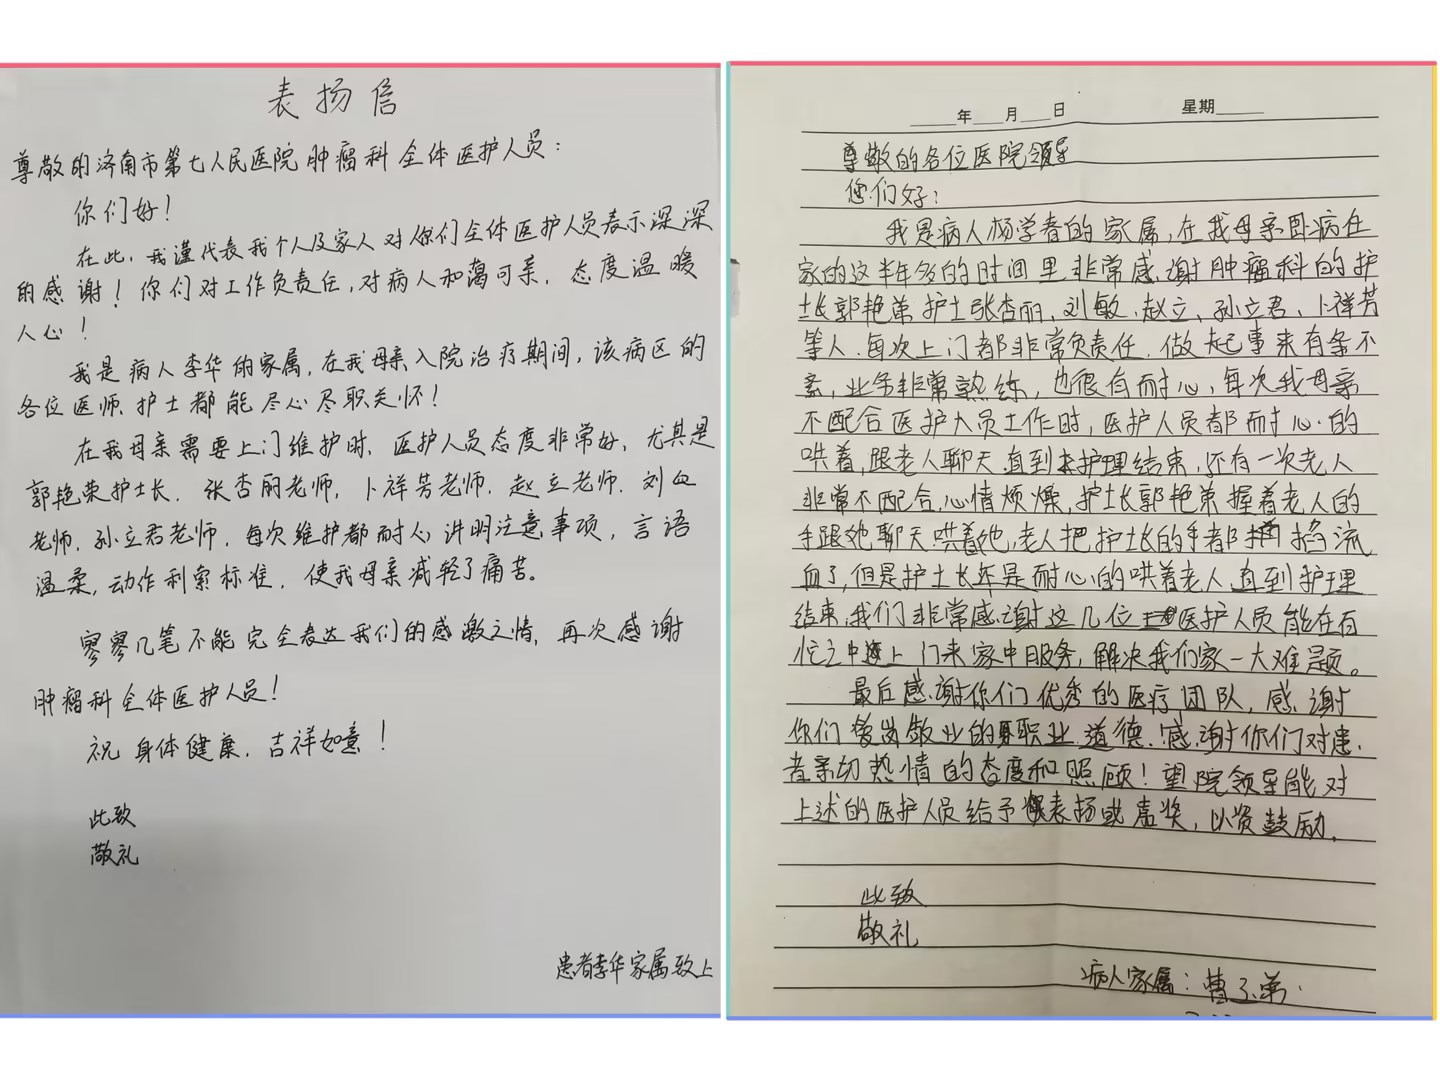 表扬信
尊敬的济南市第七人民医院肿瘤科全体医护人员：
你们好！
在此，我谨代表我个人及家人对你们全体医护人员表示深深
的感谢！你们对工作负责任，对病人和蔼可亲，态度温暖
人心！
我是病人李华的家属，在我母亲入院治疗期间，该病区的
各位医师、护士都能尽心尽职关怀！
在我母亲需要上门维护时，医护人员态度非常好，尤其是
郭艳荣护士长、张杏丽老师，卜祥芳老师、赵立老师、刘
老师、孙立君老师，每次维护都耐心讲明注意事项，言语
温柔，动作利索标准，使我母亲减轻了痛苦。
寥寥几笔不能完全表达我们的感激之情，再次感谢
肿瘤科全体医护人员！
祝身体健康，吉祥如意！
此致
敬礼
患者李华家属致上
年 月 日 星期
尊敬的各位医院领导
您们好：
我是病人杨学者的家属，在我母亲卧病在
家的这半年多的时间里非常感谢肿瘤科的护
士长郭艳弟护士张杏丽、刘敏、赵立、孙立君、卜祥芳
等人，每次上门都非常负责任，做起事来有条不
紊，业务非常熟练，也很有耐心，每次我母亲
不配合医护人员工作时，医护人员都耐心的
哄着，跟老人聊天直到护理结束，还有一次老人
非常不配合，心情烦燥，护士长郭艳弟握着老人的
手跟她聊天哄着她，老人把护士长的手都掐流
血了，但是护士长还是耐心的哄着老人，直到护理
结束，我们非常感谢这几位医护人员能在百
忙之中上门来家中服务，解决我们家一大难题。
最后感谢你们优秀的医疗团队，感谢
你们爱岗敬业的职业道德！感谢你们对患
者亲切热情的态度和照顾！望院领导能对
上述的医护人员给予表扬或嘉奖，以资鼓励。
此致
敬礼
病人家属：曹